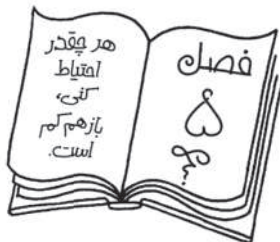 فصل
۵
هر چقدر
احتیاط
کنی،
بازهم کم
است.